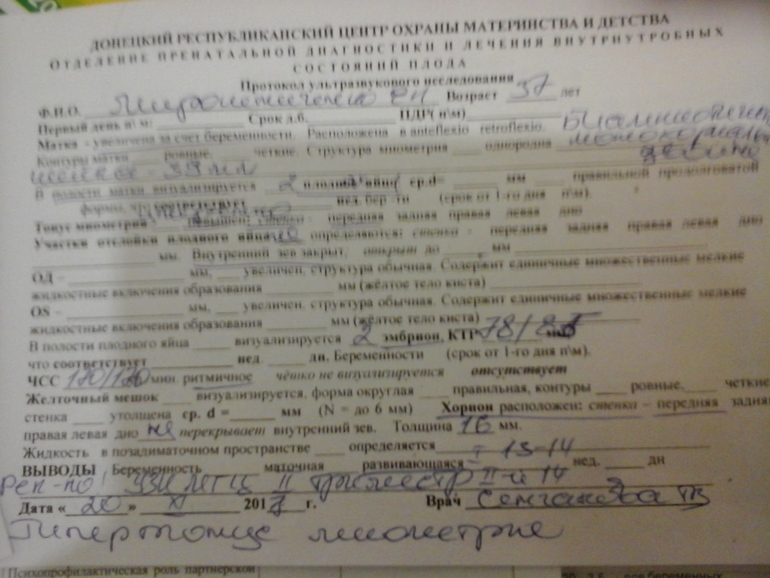 ДОНЕЦКИЙ РЕСПУБЛИКАНСКИЙ ЦЕНТР ОХРАНЫ МАТЕРИНСТВА И ДЕТСТВА
ОТДЕЛЕНИЕ ПРЕНАТАЛЬНОЙ ДИАГНОСТИКИ И ЛЕЧЕНИЯ ВНУТРИУТРОБНЫХ
СОСТОЯНИЙ ПЛОДА
Протокол ультразвукового исследования
Ф.И.О. Возраст 37 лет
Первый день п\м: Срок л.б. ПДР( п\м)
Матка - увеличена за счет беременности. Расположена в anteflexio retroflexio.
Контуры матки ровные, четкие. Структура миометрия однородна
шейка - 39 мм
В полости матки визуализируется 2 плодных яйца ср.d= мм правильной продолговатой
форма, что соответствует нед. бер-ти (срок от 1-го дня п\м).
Тонус миометрия повышен: стенки - передняя задняя правая левая дно
Участки отслойки плодного яйца не определяются: стенки - передняя задняя правая левая дно
мм. Внутренний зев закрыт, открыт до мм
ОД – мм, увеличен, структура обычная. Содержит единичные множественные мелкие
жидкостные включения образования мм (жёлтое тело киста)
OS – мм, увеличен, структура обычная. Содержит единичные множественные мелкие
жидкостные включения образования мм (жёлтое тело киста)
В полости плодного яйца визуализируется 2 эмбрион, КТР 78/
что соответствует нед. дн. Беременности (срок от 1-го дня п\м).
ЧСС мин. ритмичное чётко не визуализируется отсутствует
Желточный мешок визуализируется, форма округлая правильная, контуры ровные, четкие
стенка утолщена ср. d = мм (N = до 6 мм) Хорион расположен: стенка – передняя задняя
правая левая дно не перекрывает внутренний зев. Толщина 16 мм.
Жидкость в позадиматочном пространстве определяется
ВЫВОДЫ Беременность маточная развивающаяся 13-14 нед. дн
Рек-но! УЗИ МГЦ II триместр
Дата « 20 » XI 2017 г. Врач
Гипертонус миометрия
Психопрофилактическая роль партнерской